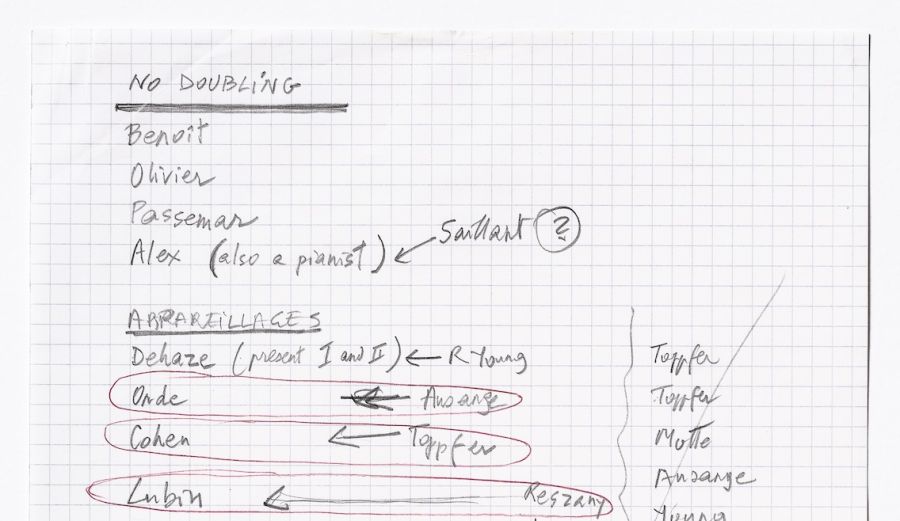 NO DOUBLING
Benoît
Olivier
Passemar
Alex (also a pianist) ← Saillant ?
APPAREILLAGES
Dehaze (present I and II) ← R. Young
Onde ← Ansange
Cohen ← Toppfer
Lubin ← Reszany
Toppfer
Toppfer
Motte
Ansange
Young